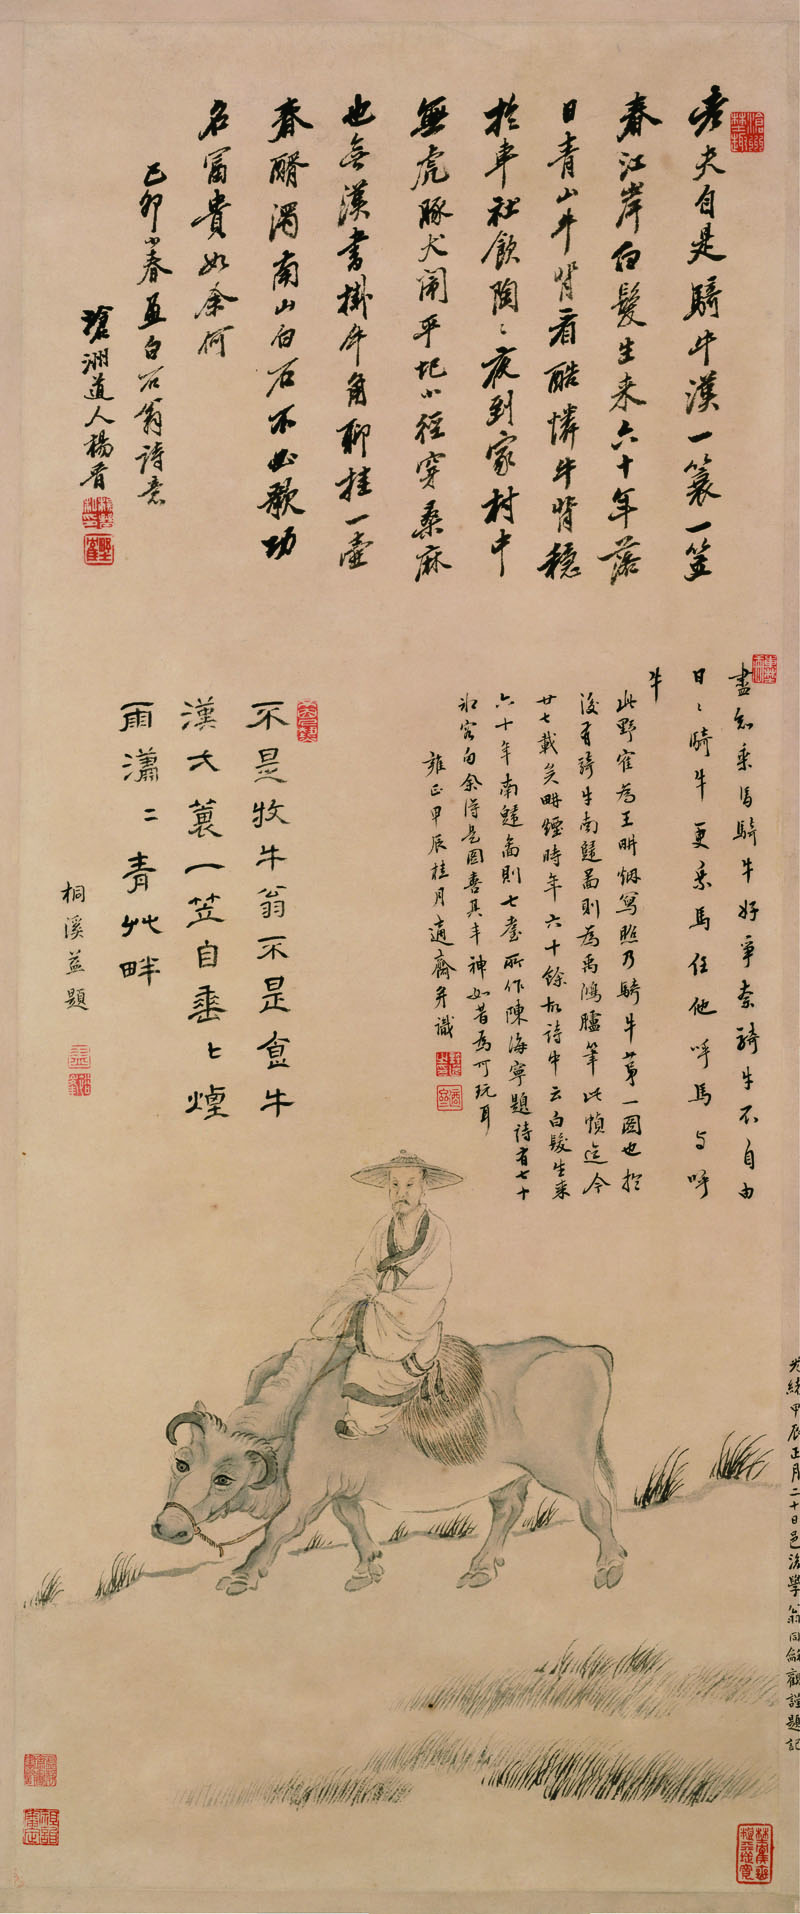 老夫自是騎牛漢一蓑一笠
春江岸白髮生来六十年落
日青山牛背看酷憐牛背穩
於車社飲陶〻夜到家村中
無虎豚犬鬧平圯小徑穿桑麻
也無漢書掛牛角聊挂一壺
春醑濁南山白石不必歌功
名富貴如余何
己卯小春画白石翁詩意
滄洲道人楊晋
盡怱乘馬騎牛好爭奈騎牛不自由
日〻騎牛更乘馬任他呼馬与呼
牛
此野崔為王畊烟寫照乃騎牛第一圖也於
後有騎牛南歸圖則為禹鴻臚筆此幀迄今
廿七載矣畊煙時年六十餘故詩中云白髮生来
六十年南歸圖則七耋所作陳海寧題詩有七十
老客句余得是圖喜其丰神如昔為可玩耳
雍正甲辰桂月適齋并識
不是牧牛翁不是飯牛
漢大蓑一笠自垂〻煙
雨瀟〻青艸畔
桐溪益題
光緒甲辰正月二十日邑後學翁同龢觀謹題記